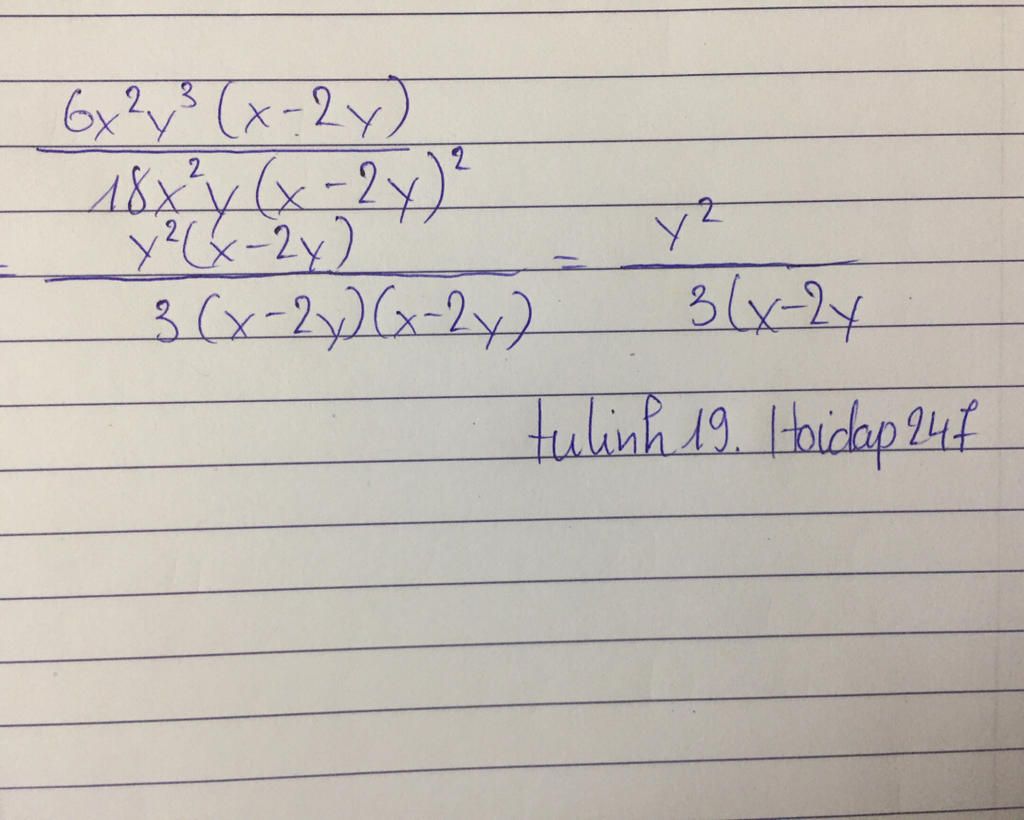 6x²y³(x-2y)
18x²y(x-2y)²
= y²(x-2y) / 3(x-2y)(x-2y) = y² / 3(x-2y
tulinh19. Hoidap247